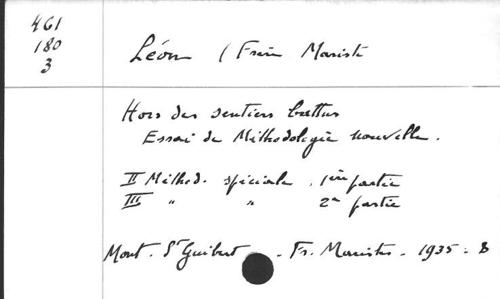 461
180
3
Léon (Frère Mariste
Hors des sentiers battus
Essai de Méthodologie nouvelle.
II Méthod. spéciale, 1ère partie
III " " 2e partie
Mont-St Guibert - Fr. Maristes - 1935 - 8